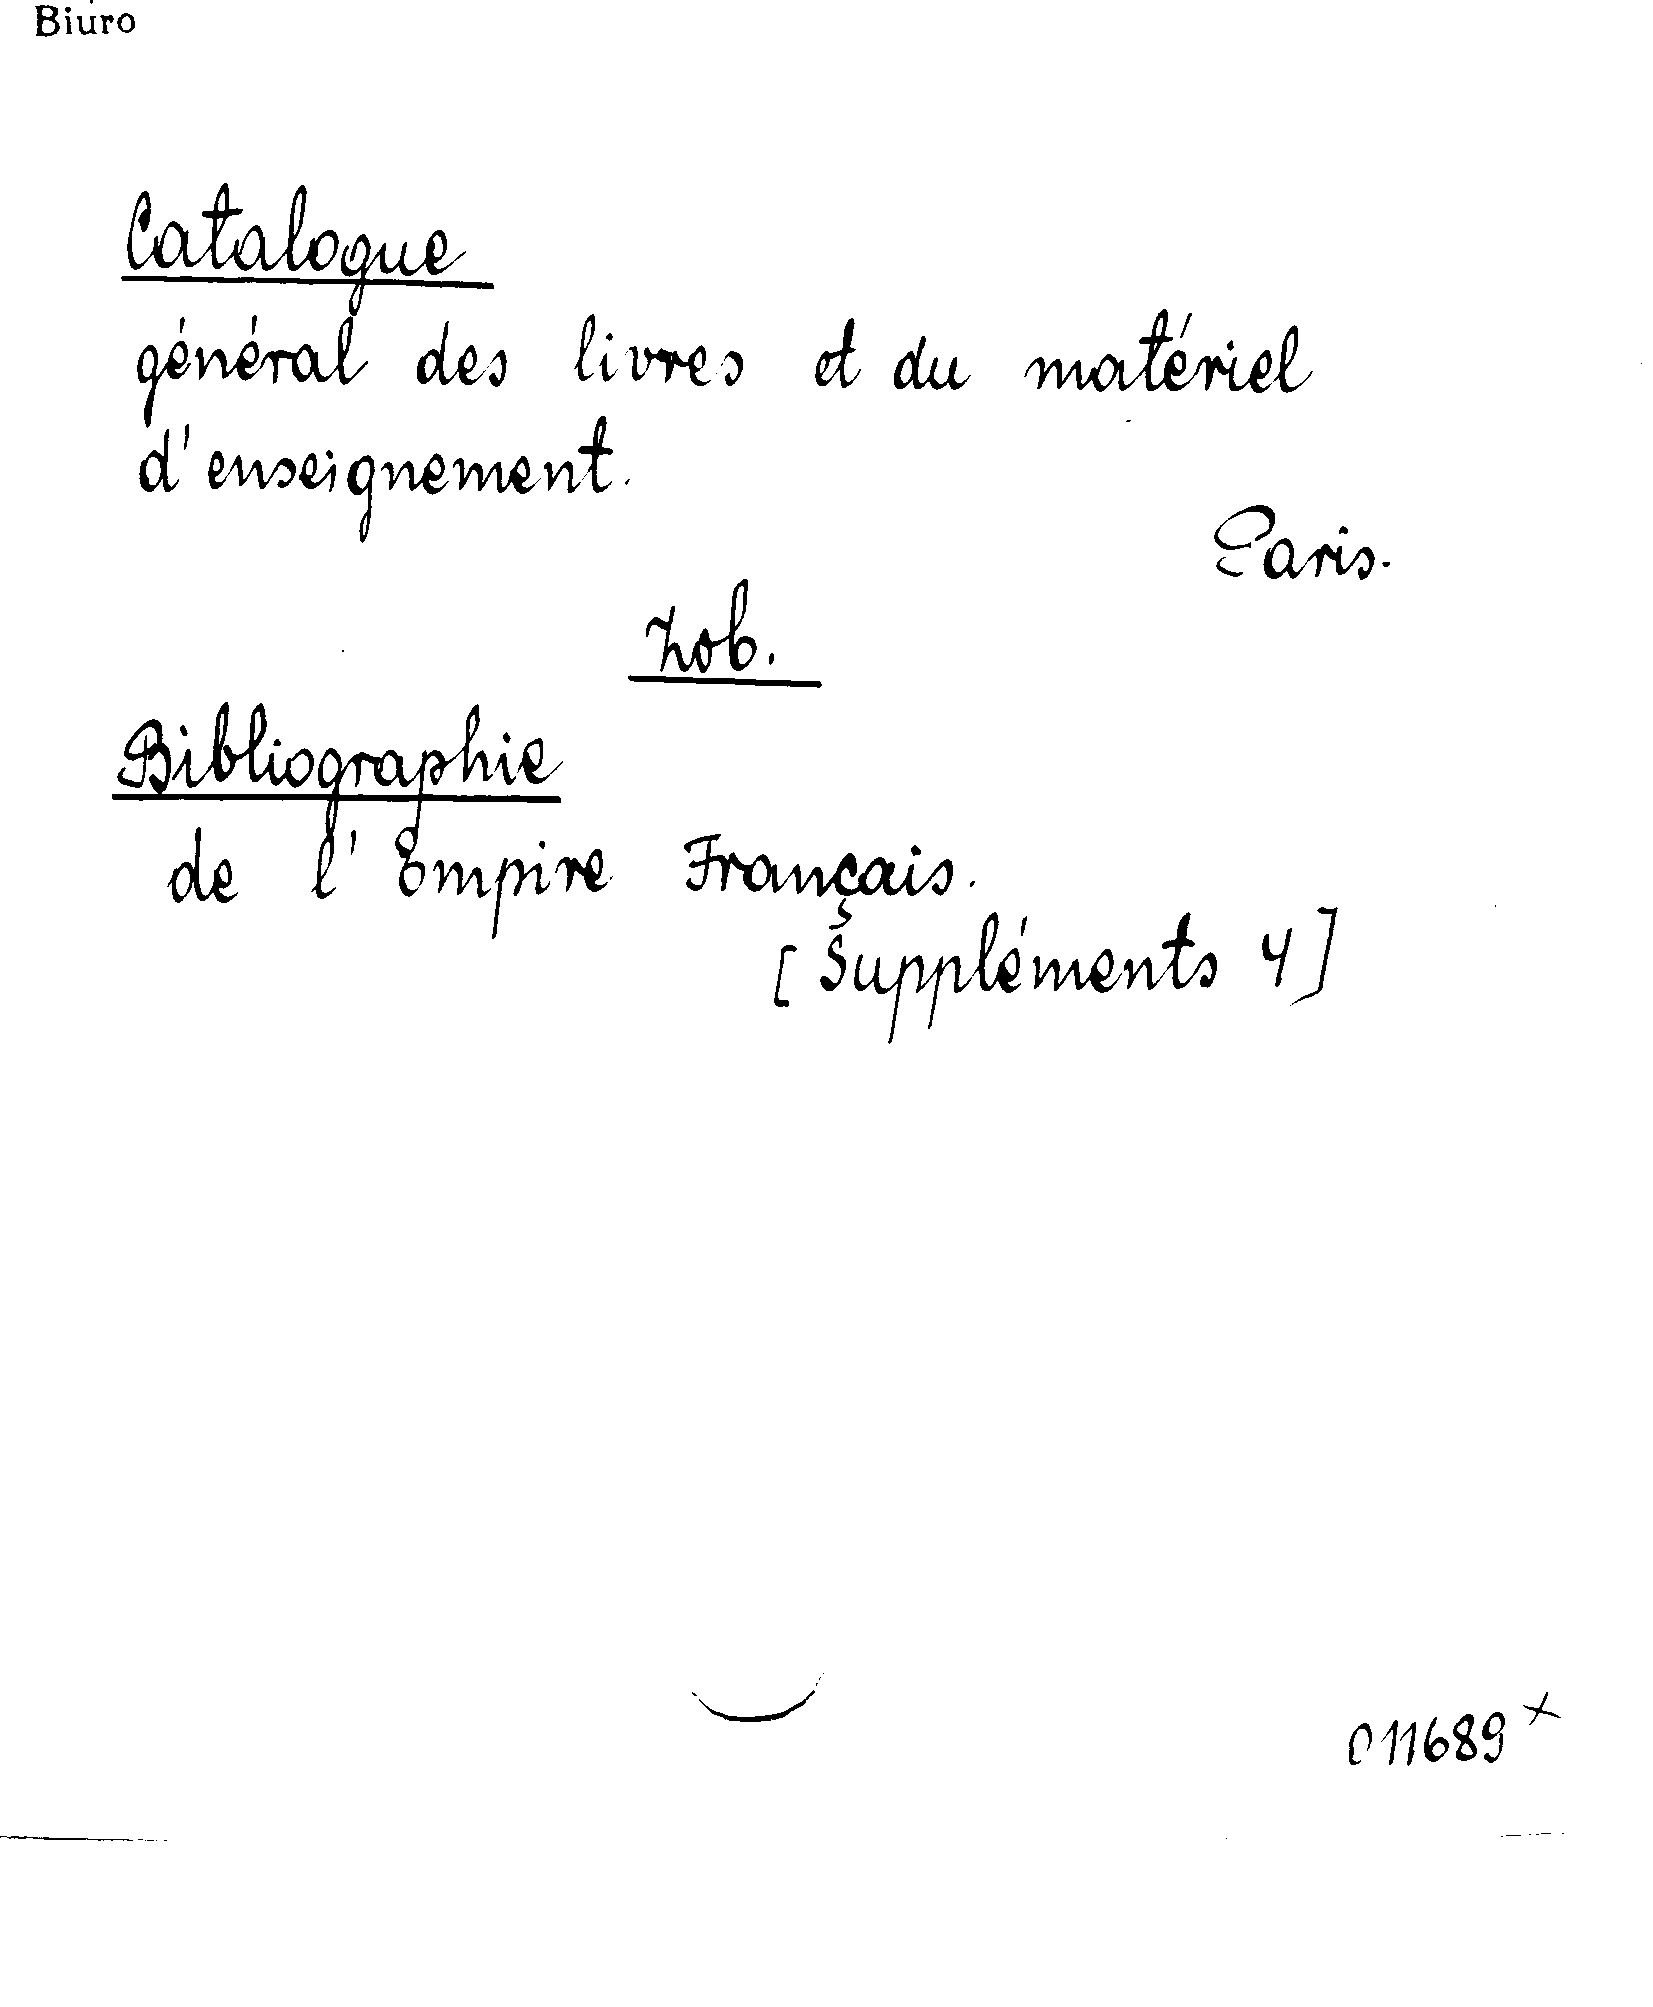 Biuro
Catalogue
général des livres et du matériel
d'enseignement.
Paris.
Zob.
Bibliographie
de l'Empire Français.
[Suppléments 4]
011689 x